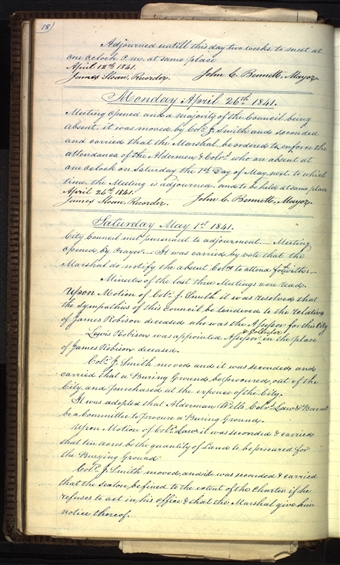 18)
Adjourned untill this day two weeks to meet at
one oclock P.M. at same place
April 18th 1841.
James Sloan, Recorder. John C. Bennett, Mayor
Monday April 26th 1841.
Meeting opened and a majority of the Council being
absent, it was moved by Col. J. Smith and seconded
and carried that the Marshal be ordered to enforce the
attendance of the Aldermen & Col. who are absent at
one oclock on Saturday the 1st Day of May next to which
time the Meeting is adjourned, and to be held at same place
April 26th 1841.
James Sloan, Recorder. John C. Bennett, Mayor.
Saturday May 1st 1841.
City Council met pursuant to adjournment — Meeting
opened by Prayer — It was carried by vote that the
Marshal do notify the absent Col. to attend forthwith
Minutes of the last three Meetings were Read.
Upon Motion of Col. J. Smith it was resolved that
the sympathies of this Council be tendered to the Relatives
of James Robison deceased who was the Assessor for this City
Lewis Robison was appointed Assessor & Collector in the place
of James Robison deceased.
Col. J. Smith moved and it was seconded and
carried that a Buring Ground, be procured, out of the
City, and purchased at the expense of the City.
It was adopted that Alderman Wells, Col. Law &
be a Committee to procure a Buring Ground.
Upon Motion of Col. Law, it was seconded & carried
that ten acres, be the quantity of Land to be procured for
the Burying Ground
Col. J. Smith moved, and it was seconded & carried
that the Sexton, be fined to the extent of the Charter if he
refuses to act in his office & that the Marshal give him
notice thereof.